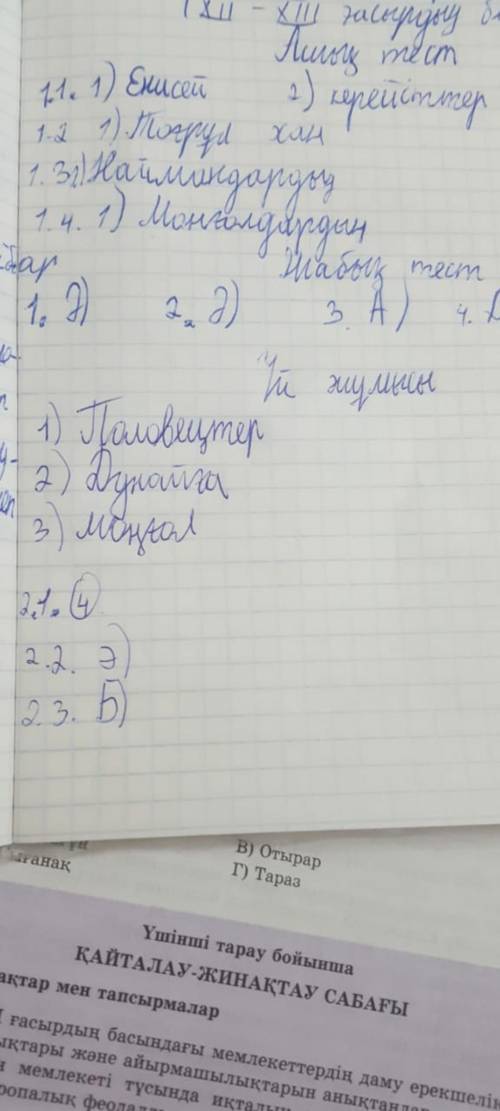 XII - XIII ғасырдың
Ашық тест
1.1. 1) Енисей 2) керейіттер
1.2 1) Тоғрұл хан
1.3. Наймандардың
1.4. 1) Монғолдардың
Жабық тест
1. Ә) 2. Ә) 3. А) 4.
Үй жұмысы
1) Половецтер
2) Дунайға
3) моңғол
2.1. 4
2.2. Ә)
2.3. Б)
В) Отырар
ығанақ
Г) Тараз
Үшінші тарау бойынша
ҚАЙТАЛАУ-ЖИНАҚТАУ САБАҒЫ
ақтар мен тапсырмалар
ғасырдың басындағы мемлекеттердің даму ерекшелі
ықтары және айырмашылықтарын анықтаңд
мемлекеті тұсында иқталық